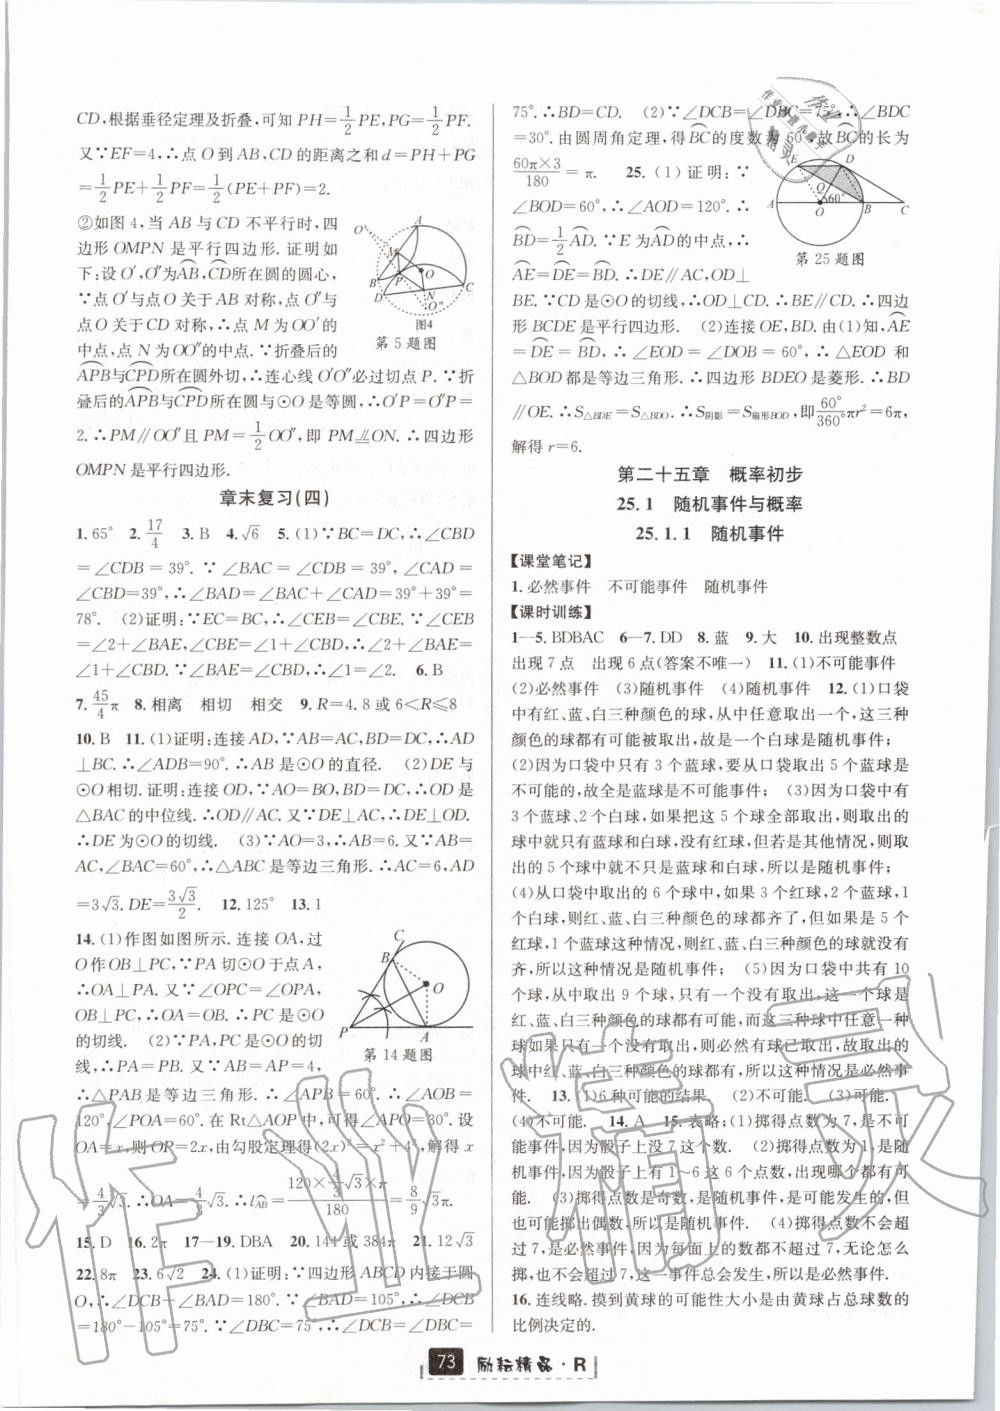 CD,根据垂径定理及折叠,可知 PH=1/2PE,PG=1/2PF.
又∵EF=4,∴点 O 到 AB、CD 的距离之和 d=PH+PG
=1/2PE+1/2PF=1/2(PE+PF)=2.
②如图 4,当 AB 与 CD 不平行时,四
边形 OMPN 是平行四边形. 证明如
下:设 O′,O″为⌒APB,⌒CPD所在圆的圆心,
∵点 O′与点 O 关于 AB 对称,点 O″与
点 O 关于 CD 对称,∴点 M 为 OO′的
中点,点 N 为 OO″的中点. ∵折叠后的
⌒APB与⌒CPD所在圆外切,∴连心线 O′O″必过切点 P. ∵折
叠后的⌒APB与⌒CPD所在圆与⊙O 是等圆,∴O′P=O″P=
2. ∴PM∥OO″且 PM=1/2OO″,即 PM⫫ON. ∴四边形
OMPN 是平行四边形.
图4
第 5 题图
章末复习(四)
1. 65° 2. 17/4 3. B 4. √6 5. (1)∵BC=DC,∴∠CBD
=∠CDB=39°. ∵∠BAC=∠CDB=39°,∠CAD=
∠CBD=39°,∴∠BAD=∠BAC+∠CAD=39°+39°=
78°. (2)证明:∵EC=BC,∴∠CEB=∠CBE. ∵∠CEB
=∠2+∠BAE,∠CBE=∠1+∠CBD,∴∠2+∠BAE=
∠1+∠CBD. ∵∠BAE=∠CBD,∴∠1=∠2. 6. B
7. 45/4π 8. 相离 相切 相交 9. R=4.8 或 6<R≤8
10. B 11. (1)证明:连接 AD,∵AB=AC,BD=DC,∴AD
⊥BC. ∴∠ADB=90°. ∴AB 是⊙O 的直径. (2)DE 与
⊙O 相切. 证明:连接 OD,∵AO=BO,BD=DC,∴OD 是
△BAC 的中位线. ∴OD∥AC. 又∵DE⊥AC,∴DE⊥OD.
∴DE 为⊙O 的切线. (3)∵AO=3,∴AB=6. 又∵AB=
AC,∠BAC=60°,∴△ABC 是等边三角形. ∴AC=6,AD
=3√3. DE=3√3/2. 12. 125° 13. 1
14. (1)作图如图所示. 连接 OA,过
O 作 OB⊥PC,∵PA 切⊙O 于点 A,
∴OA⊥PA. 又∵∠OPC=∠OPA,
OB⊥PC,∴OA=OB. ∴PC 是⊙O
的切线. (2)∵PA,PC 是⊙O 的切
线,∴PA=PB. 又∵AB=AP,
∴△PAB 是等边三角形. ∴∠APB=60°. ∴∠AOB=
120°,∠POA=60°. 在 Rt△AOP 中,可得∠APO=30°. 设
OA=x,则 OP=2x,由勾股定理得(2x)²=x²+4²,解得 x
=4/3√3. ∴OA=4/3√3. ∴l⌒AB=(120×4/3√3×π)/180=8/9√3π.
第 14 题图
15. D 16. 2π 17—19. DBA 20. 144π 或 384π 21. 12√3
22. 8π 23. 6√2 24. (1)证明:∵四边形 ABCD 内接于圆
O,∴∠DCB+∠BAD=180°. ∵∠BAD=105°,∴∠DCB
=180°-105°=75°. ∵∠DBC=75°,∴∠DCB=∠DBC=
75°. ∴BD=CD. (2)∵∠DCB=∠DBC=75°,∴∠BDC
=30°. 由圆周角定理,得⌒BC的度数为 60°,故⌒BC的长为
60π×3/180=π. 25. (1)证明:∵
∠BOD=60°,∴∠AOD=120°. ∴
⌒BD=1/2⌒AD. ∵E 为⌒AD的中点,∴
⌒AE=⌒DE=⌒BD. ∴DE∥AC,OD⊥
BE. ∵CD 是⊙O 的切线,∴OD⊥CD. ∴BE∥CD. ∴四边
形 BCDE 是平行四边形. (2)连接 OE,BD. 由(1)知,⌒AE
=⌒DE=⌒BD,∴∠EOD=∠DOB=60°,∴△EOD 和
△BOD 都是等边三角形. ∴四边形 BDEO 是菱形. ∴BD
∥OE. ∴S△BDE=S△BDO. ∴S阴影=S扇形BOD,即60°/360°πr²=6π,
解得 r=6.
第 25 题图
第二十五章 概率初步
25.1 随机事件与概率
25.1.1 随机事件
【课堂笔记】
1. 必然事件 不可能事件 随机事件
【课时训练】
1—5. BDBAC 6—7. DD 8. 蓝 9. 大 10. 出现整数点
出现 7 点 出现 6 点(答案不唯一) 11. (1)不可能事件
(2)必然事件 (3)随机事件 (4)随机事件 12. (1)口袋
中有红、蓝、白三种颜色的球,从中任意取出一个,这三种
颜色的球都有可能被取出,故是一个白球是随机事件;
(2)因为口袋中只有 3 个蓝球,要从口袋中取出 4 个蓝球是
不可能的,故全是蓝球是不可能事件; (3)因为口袋中有
3 个蓝球、2 个白球,如果把这 5 个球全部取出,则取出的
球中就只有蓝球和白球,没有红球,但若是其他情况,则取
出的 5 个球中就不只是蓝球和白球,所以是随机事件;
(4)从口袋中取出的 6 个球中,如果 3 个红球,2 个蓝球,1
个白球,则红、蓝、白三种颜色的球都齐了,但如果是 5 个
红球、1 个蓝球这种情况,则红、蓝、白三种颜色的球没有
齐,所以这种情况是随机事件; (5)因为口袋中共有 10
个球,从中取出 9 个球,只有一个球没有取出,而红、蓝、白
三种颜色的球都有可能,而这三种球中任意一种
球如果只有一个没有取出,则必然有球已取出,故取出的
球中红、白、蓝三种颜色的球都有,所以这种情况是必然事
件. 13. (1)6种可能的结果. (2)不可能. (3)可能.
(4)不可能. 14. A 15. 表略;(1)掷得点数为 7,是不可
能事件,因为骰子上没 7 这个数. (2)掷得点数为 1,是随
机事件,因为骰子上有 1~6 这 6 个点数,出现哪个都有可
能. (3)掷得点数是奇数,是随机事件,是可能发生的,但
也可能掷出偶数,所以是随机事件. (4)掷得点数不会超
过 7,是必然事件,因为每面上的数都不超过 7,无论怎么
掷,也不会超过 7,这一事件总会发生,所以是必然事件.
16. 连线略. 摸到黄球的可能性大小是由黄球占总球数的
比例决定的.
73 励耘精品·R
作业精灵